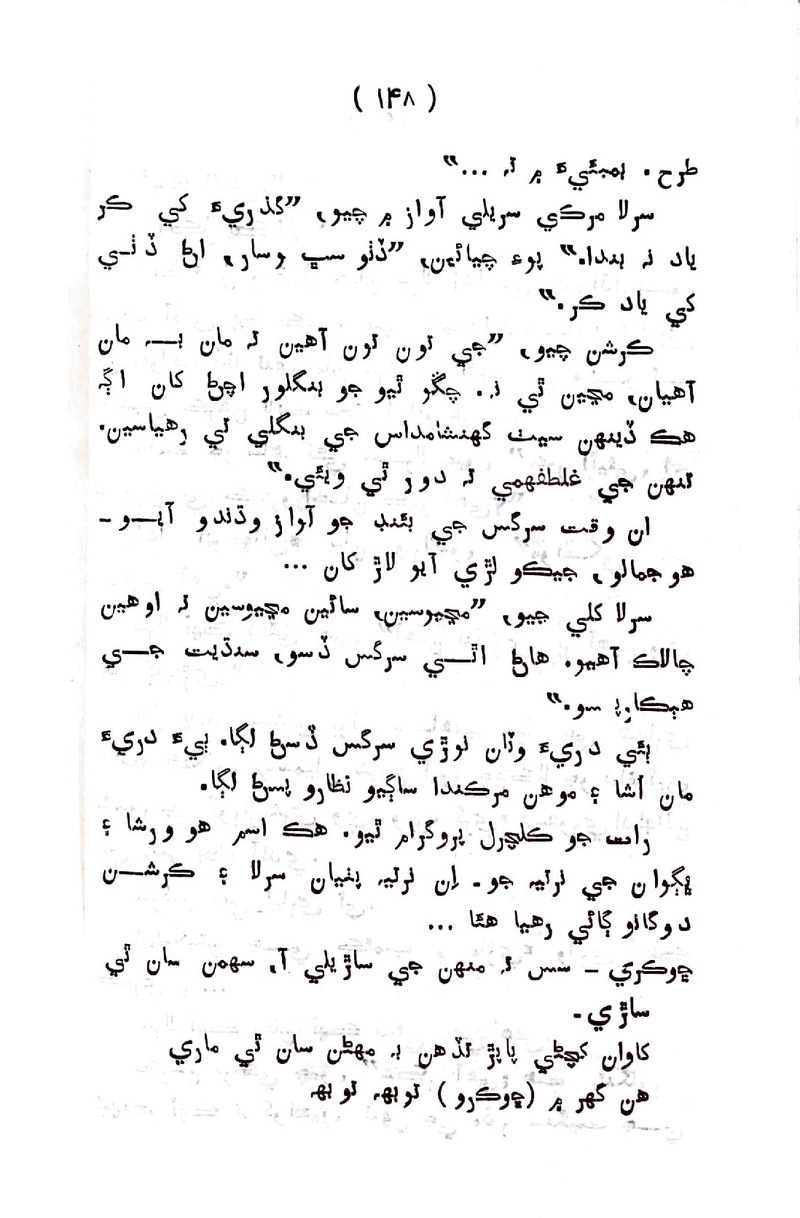 ( ۱۴۸ )
طرح. بمبئيءَ ۾ تہ ...“
سرلا مرڪي سريلي آواز ۾ چيو، ”گذريءَ کي ڪر
ياد نہ بندا.“ پوءِ چيائين، ”ڏٺو سڀ وسار، اڻ ڏٺي
کي ياد ڪر.“
ڪرشن چيو، ”جي تون تون آهين تہ مان بہ مان
آهيان، مڃين ٿي نہ. چڱو ٿيو جو بنگلور اچڻ کان اڳہ
هڪ ڏينهن سيٺ گهنشامداس جي بنگلي تي رهياسين.
تنهن جي غلطفهمي تہ دور ٿي ويئي.“
ان وقت سرگس جي بئنڊ جو آواز وڌندو آيو -
هو جمالو، جيڪو لڙي آيو لاڙ کان ...
سرلا کلي چيو، ”مڃيوسين، سائين مڃيوسين تہ اوهين
چالاڪ آهيو. هاڻ اٿي سرگس ڏسو، سنڌيت جي
هٻڪار پسو.“
ٻئي دريءَ وٽان نوڙي سرگس ڏسڻ لڳا. ٻيءَ دريءَ
مان آشا ۽ موهن مرڪندا ساڳيو نظارو پسڻ لڳا.
رات جو ڪلچرل پروگرام ٿيو. هڪ اسم هو ورشا ۽
ڀڳوان جي نرتيہ جو. اِن نرتيہ پٺيان سرلا ۽ ڪرشن
دوگانو ڳائي رهيا هئا ...
ڇوڪري - سس تہ منهن جي ساڙيلي آ، سهمن سان ٿي
ساڙي.
کاوان کڇڻي پاپڙ تڏهن بہ مهڻن سان ٿي ماري
هن گهر ۾ (ڇوڪرو) توبهہ توبهہ